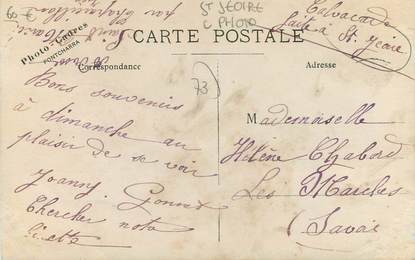 60 €
ST JEOIRE
C PHOTO
73
Calvacade
faite à St Jeoire
Photo-Cadres
PONTCHARRA
CARTE POSTALE
Correspondance
Adresse
Bons souvenirs
à dimanche au
plaisir de se voir
Joanny
Chercher
Mademoiselle
Hélène Chabord
Les Marches
(Savoie